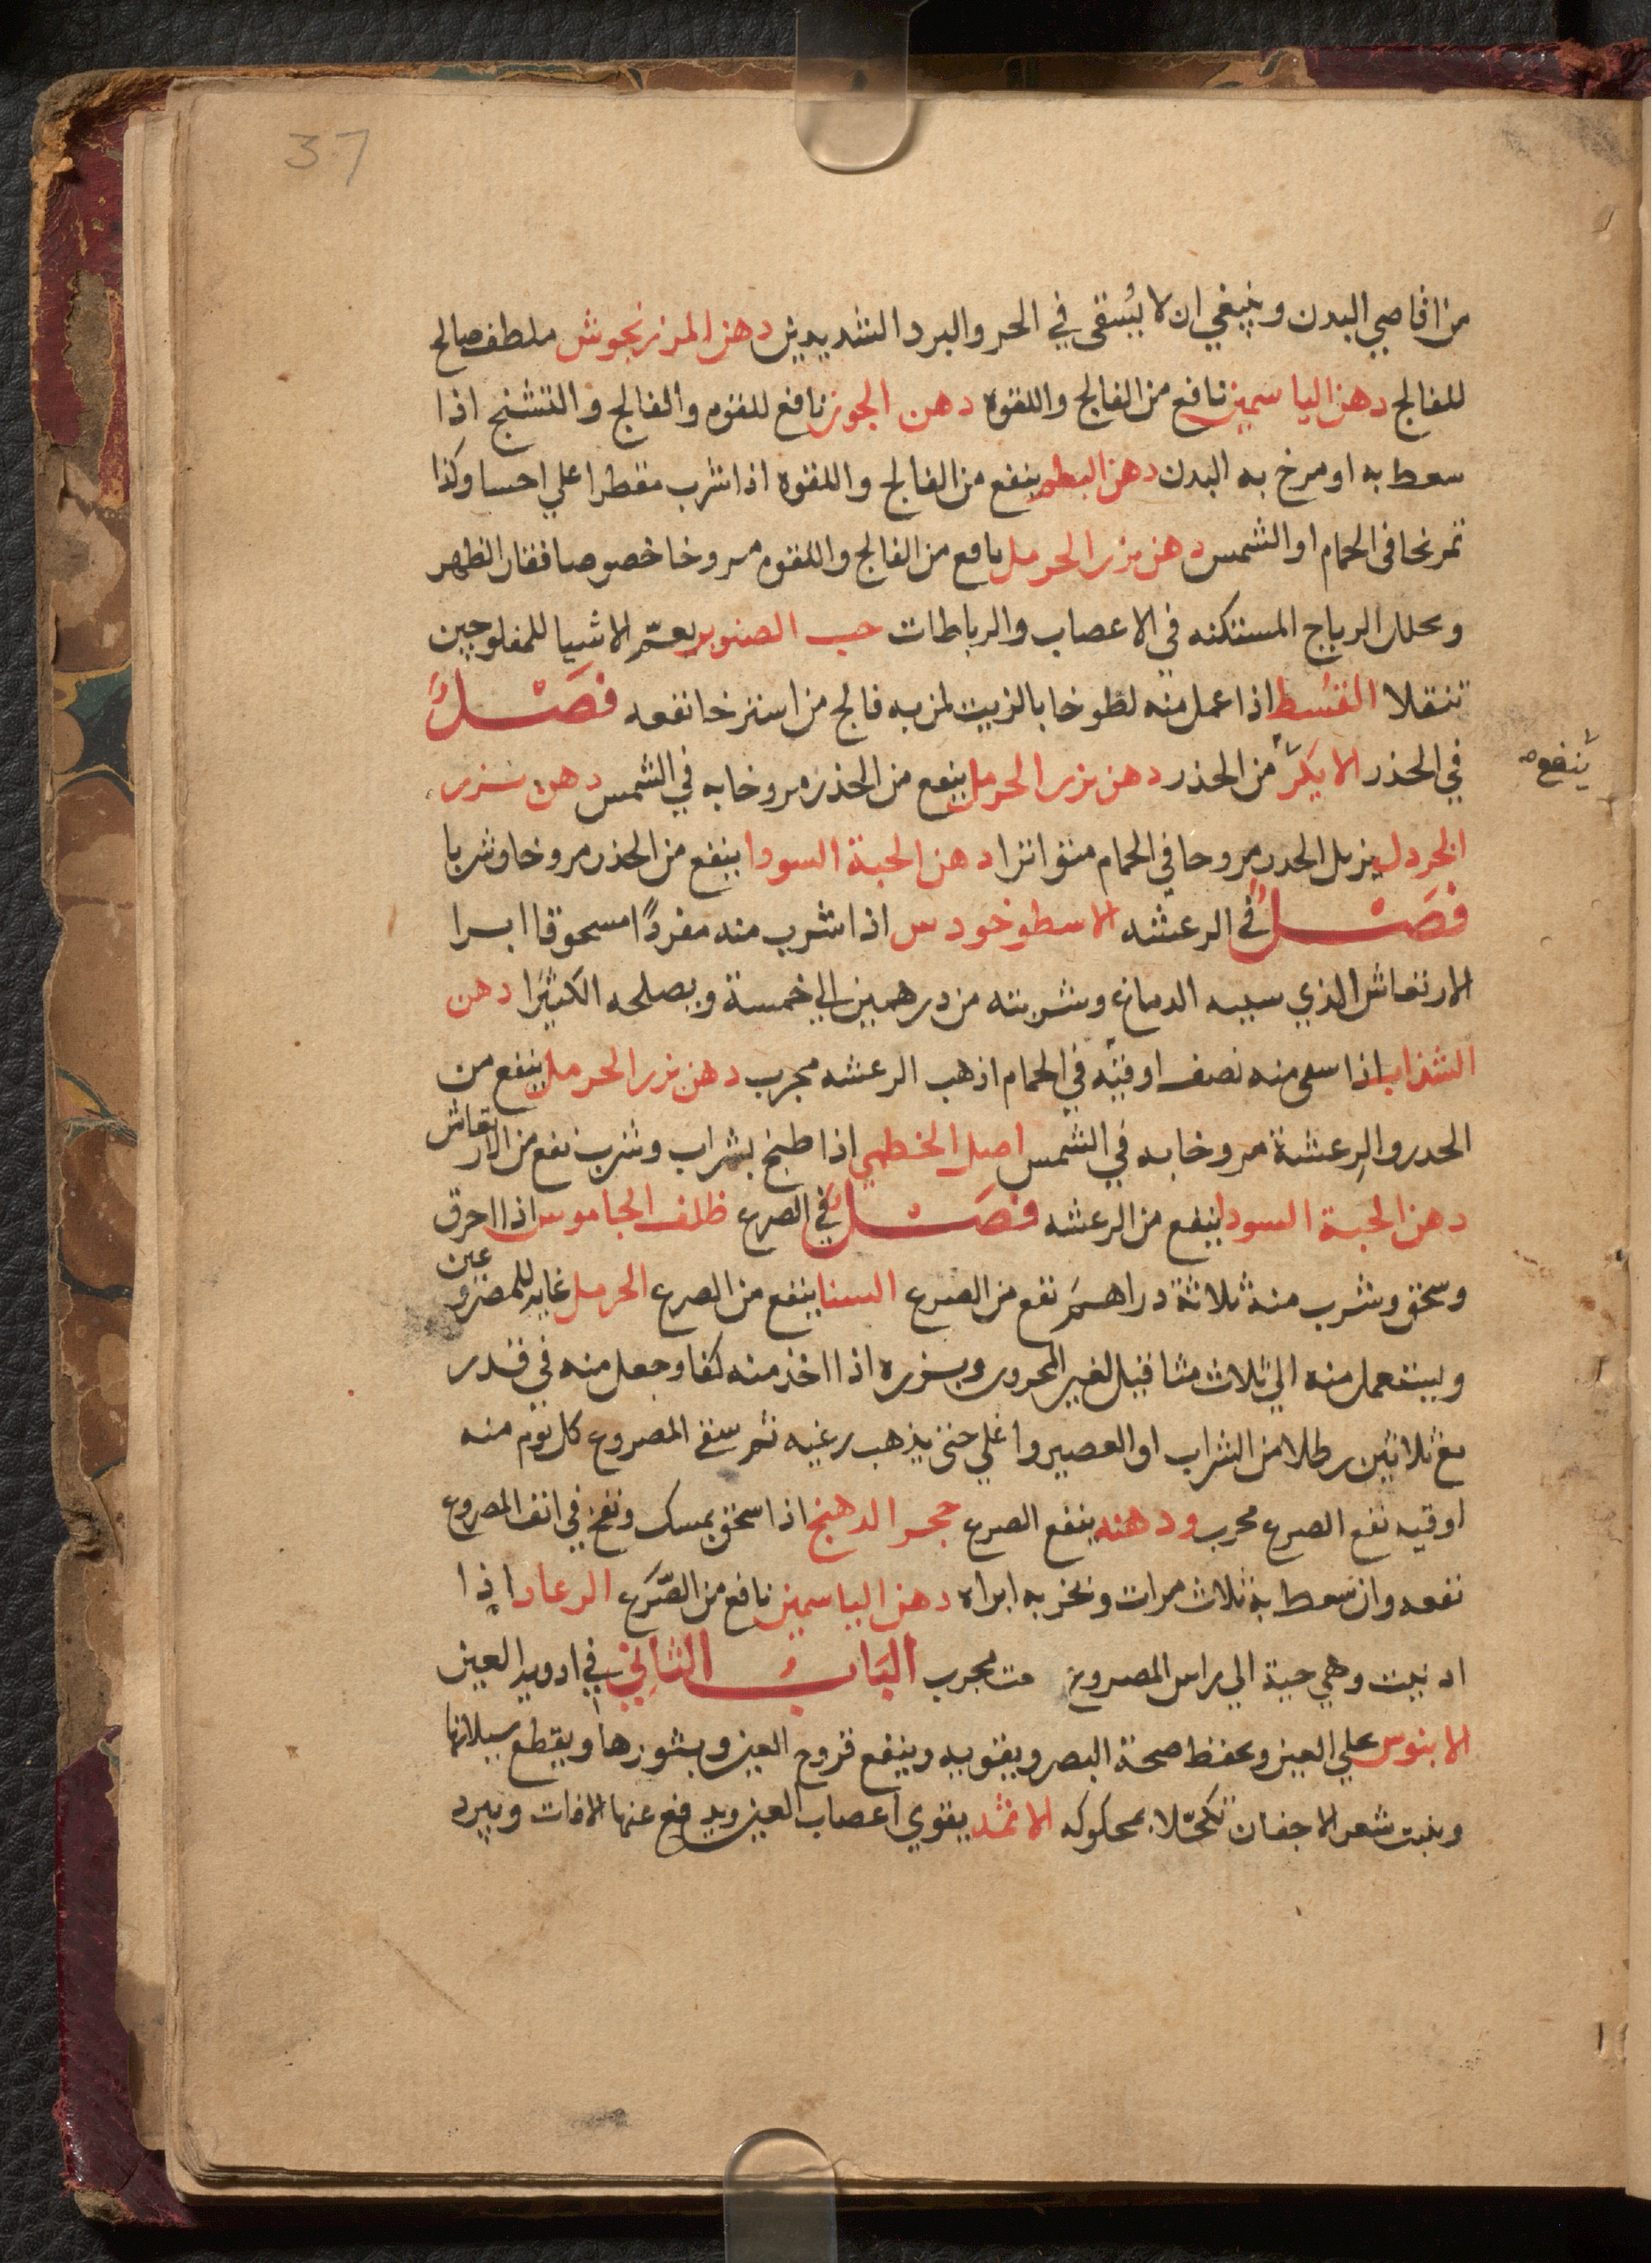 37
من اقاصي البدن وينبغي ان لا يُسقى في الحر والبرد الشديدين دهن المرزنجوش ملطف صالح
للفالج دهن الياسمين نافع من الفالج واللقوه دهن الجوز نافع للقوه والفالج والتشنج اذا
سعط به او مرخ به البدن دهن البطم ينفع من الفالج واللقوه اذا شرب مقطرا علي احسا وكذا
تمرخا في الحمام او الشمس دهن بزر الحرمل نافع من الفالج واللقوه مروخا خصوصا فقار الظهر
ويحلل الرياح المستكنه في الاعصاب والرباطات حب الصنوبر نعم الاشيا للمفلوجين
تنقلا القُسط اذا عمل منه لطوخا بالزيت لمن به فالج من استرخا نفعه فَصْلٌ
في الخذر الايكر من الخذر دهن بزر الحرمل ينفع من الخذر مروخا به في الشمس دهن بزر
ينفع
الخردل يزيل الخدر مروخا في الحمام متواترا دهن الحبة السودا ينفع من الخذر مروخا وشربا
فَصْلٌ في الرعشه الاسطوخودس اذا شرب منه مفردًا مسحوقا ابرا
الارتعاش الذي سببه الدماغ وشربته من درهمين الي خمسة ويصلحه الكثيرا دهن
الشذاب اذا سقي منه نصف اوقيه في الحمام اذهب الرعشه مجرب دهن بزر الحرمل ينفع من
الخدر والرعشة مروخا به في الشمس اصل الخطمي اذا طبخ بشراب وشرب نفع من الارتعاش
دهن الحبة السودا ينفع من الرعشه فَصْلٌ في الصرع ظلف الجاموس اذا احرق
وسحق وشرب منه ثلاثة دراهم نفع من الصرع السنا ينفع من الصرع الحرمل غايه للمصروعين
ويستعمل منه الي ثلاث مثاقيل لغير المحرور وبزره اذا اخذ منه كفا وجعل منه في قدر
مع ثلاثين رطلا من الشراب او العصير واغلي حتى يذهب رغيه ثم سقي المصروع كل يوم منه
اوقيه نفع الصرع مجرب ودهنه ينفع الصرع حجر الدهنج اذا سحق بمسك ونفخ في انف المصروع
نفعه وان سعط به ثلاث مرات وبخر به ابراه دهن الياسمين نافع من الصّرَع الرعاد اذا
ادنيت وهي حية الي راس المصروع مجرب البَابُ الثاني في ادوية العين
الابنوس علي العين ويحفظ صحة البصر ويقويه وينفع قروح العين وبثورها ويقطع سيلانها
وينبت شعر الاجفان تكحّلا بمحكوكه الاثمد يقوي اعصاب العين ويدفع عنها الافات ويبرد